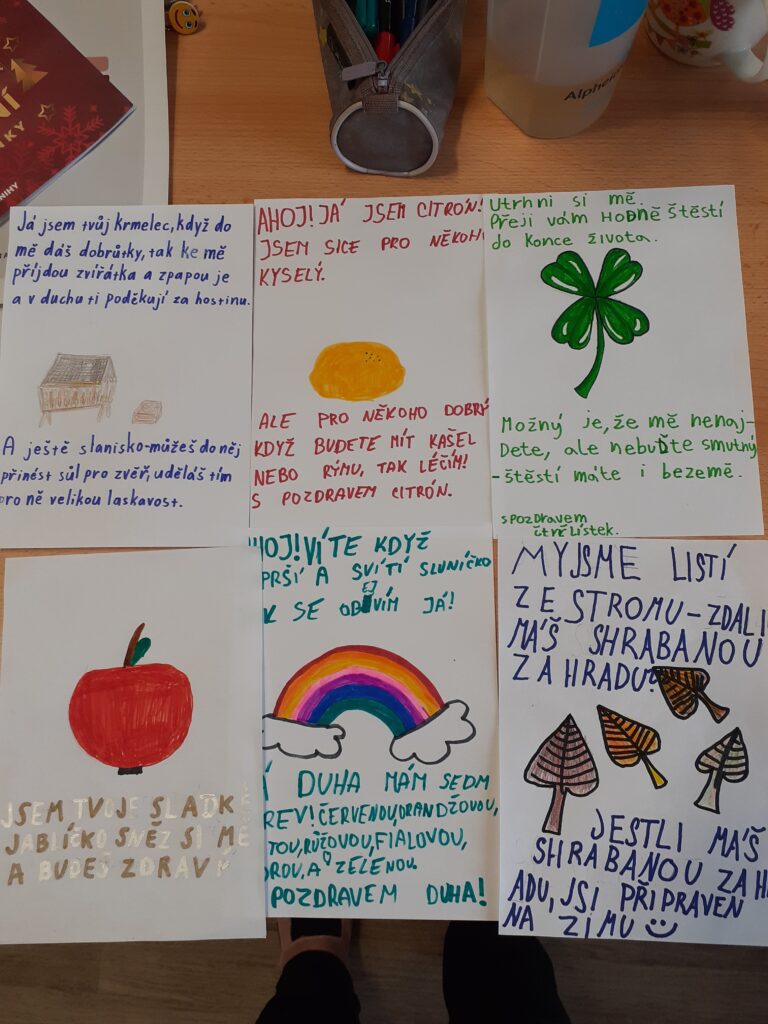 NÍ
KY
NIHY
Alphei
Já jsem tvůj krmelec, když do
mě dáš dobrůtky, tak ke mě
příjdou zvířátka a zpapou je
a v duchu ti poděkují za hostinu.
A ještě slanisko-můžeš do něj
přinést sůl pro zvěř, uděláš tím
pro ně velikou laskavost.
AHOJ! JÁ JSEM CITRÓN!
JSEM SICE PRO NĚKOH
KYSELÝ.
ALE PRO NĚKOHO DOBRÝ
KDYŽ BUDETE MÍT KAŠEL
NEBO RÝMU, TAK LÉČÍM!
S POZDRAVEM CITRÓN.
Utrhni si mě.
Přeji vám HODNĚ ŠTĚSTÍ
do konce života.
Možný je, že mě nenaj-
Dete, ale nebuďte smutný
-štěstí máte i bezemě.
s pozDravem
čtyřlístek.
JSEM TVOJE SLADKÉ
JABLÍČKO SNĚZ SI MĚ
A BUDEŠ ZDRAVÝ
HOJ! VÍTE KDYŽ
PRŠÍ A SVÍTÍ SLUNÍČKO
K SE OBJEVÍM JÁ!
Á DUHA MÁM SEDM
REV! ČERVENOU, ORANDŽOVOU,
TOU, RŮŽOVOU, FIALOVOU,
DROU, A ZELENOU.
POZDRAVEM DUHA!
MY JSME LISTÍ
ZE STROMU - ZDALI
MÁŠ SHRABANOU
ZAHRADU?
JESTLI MÁŠ
SHRABANOU ZAH
ADU, JSI PŘIPRAVEN
NA ZIMU